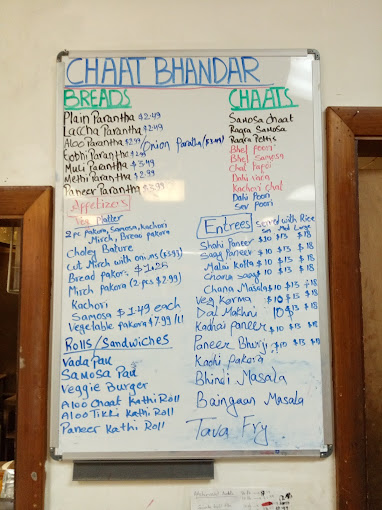 CHAAT BHANDAR
BREADS
Plain Parantha $2.49
Laccha Parantha $2.49
Aloo Parantha $2.99
Onion Parantha
Gobhi Parantha
Muli Parantha $3.49
Methi Parantha $2.99
Paneer Parantha $3.99
CHAATS
Samosa Chaat
Ragra Samosa
Ragra Pettis
Bhel poori
Bhel Samosa
Chat Papri
Dahi vara
Kachori Chat
Dahi Poori
Sev poori
Appetizers
Veg Platter
2 pc pakora, Samosa, Kachori
Mirch, Bread pakora
Choley Bature
Cut Mirch with onions ($3.93)
Bread pakora $1.25
Mirch pakora (2 pcs $2.99)
Kachori
Samosa $1.49 each
Vegetable pakora $7.99/LB
Rolls/Sandwiches
Vada Pau
Samosa Pau
Veggie Burger
Aloo Chaat Kathi Roll
Aloo Tikki Kathi Roll
Paneer Kathi Roll
Entrees served with Rice
Sm Med Large
Shahi Paneer $10 $13 $18
Saag Paneer $10 $13 $18
Malai Kofta $10 $13 $18
Chana Saag $10 $13 $18
Chana Masala $10 $13 $18
Veg Korma $10 $13 $18
Dal Makhni 10$
Kadhai Paneer $10 $13 $18
Paneer Bhurji $10 $13 $18
Kadhi pakora
Bhindi Masala
Baingaan Masala
Tava Fry